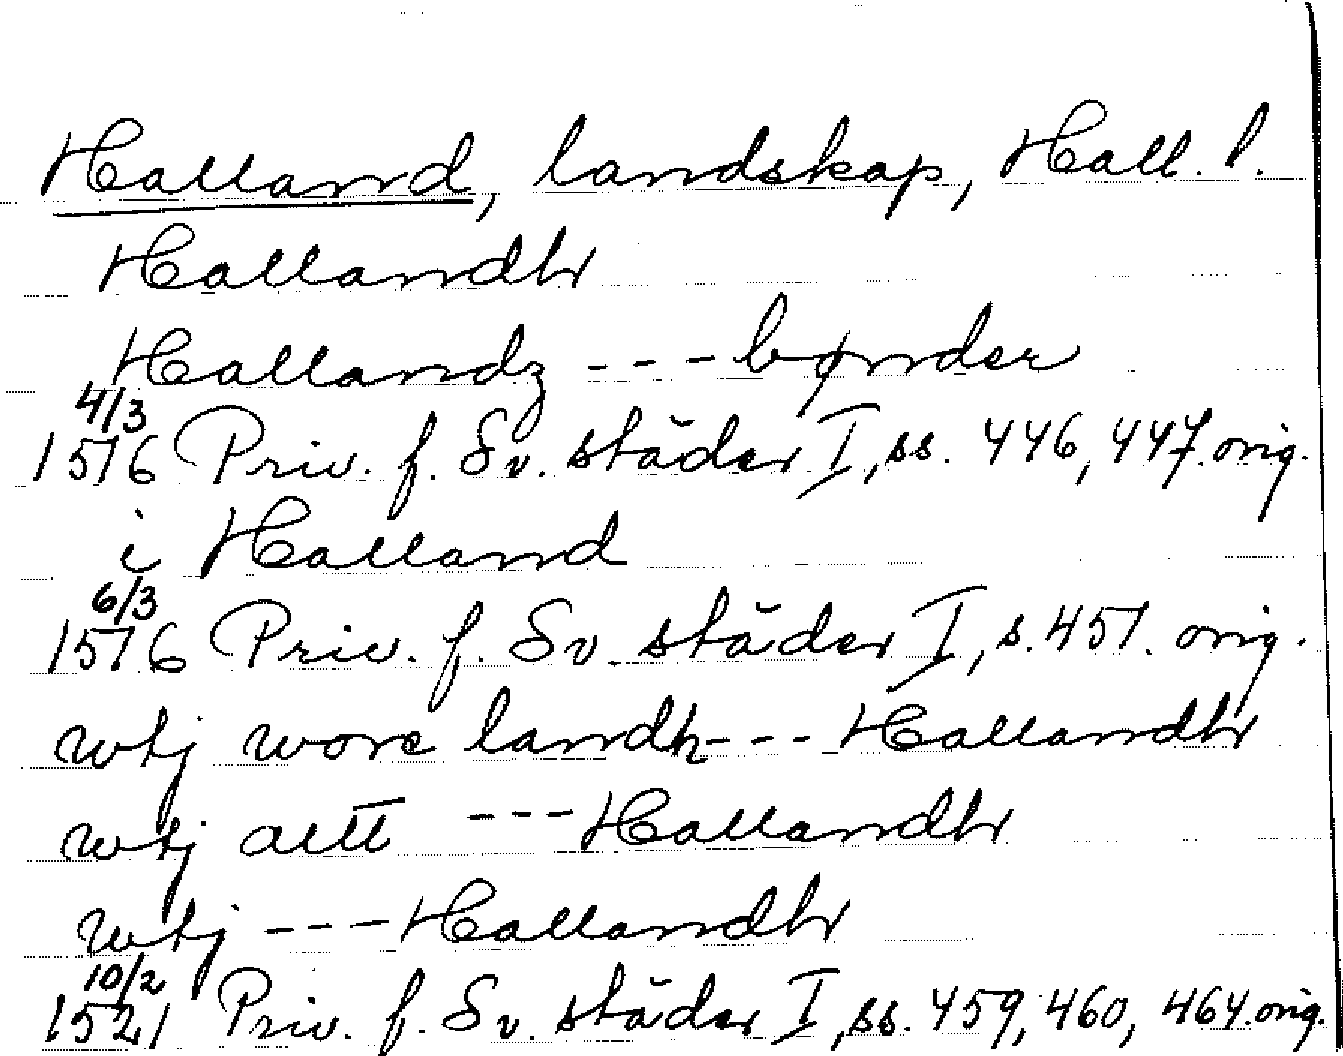 Halland, landskap, Hall. l.
Hallandh
Hallandz --- bønder
4/3
1516 Priv. f. Sv. städer I, ss. 446, 447. orig.
i Halland
6/3
1516 Priv. f. Sv. städer I, s. 451. orig.
wtj wore landh --- Hallandh
wtj altt --- Hallandh
wtj --- Hallandh
10/2
1521 Priv. f. Sv. städer I, ss. 459, 460, 464. orig.